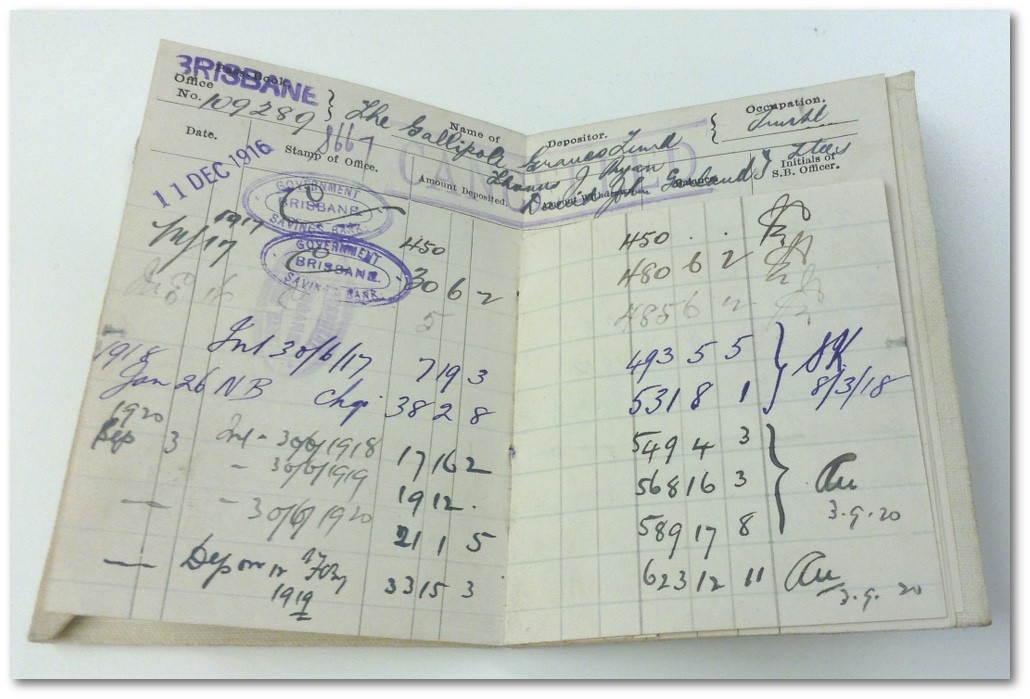 BRISBANE
Pass Book
Office
No. 109289
8667
Name of Depositor.
The Gallipoli Graves Fund
Thomas J Ryan
David John Garland
Occupation.
Trustees
CANCELLED
Date. Stamp of Office. Amount Deposited. Balance. Initials of S.B. Officer.
11 DEC 1916 GOVERNMENT BRISBANE SAVINGS BANK 450 450 . .
1917
17 GOVERNMENT BRISBANE SAVINGS BANK 30 6 2 480 6 2
5 485 6 2
Int 30/6/17 7 19 3 493 5 5
1918
Jan 26 NB Chq. 38 2 8 531 8 1 8/3/18
1920
Sep 3 Int - 30/6/1918 17 16 2 549 4 3
- 30/6/1919 19 12 . 568 16 3
— - 30/6/1920 21 1 5 589 17 8 3.9.20
— Dep on 17 1919 33 15 3 623 12 11 3.9.20